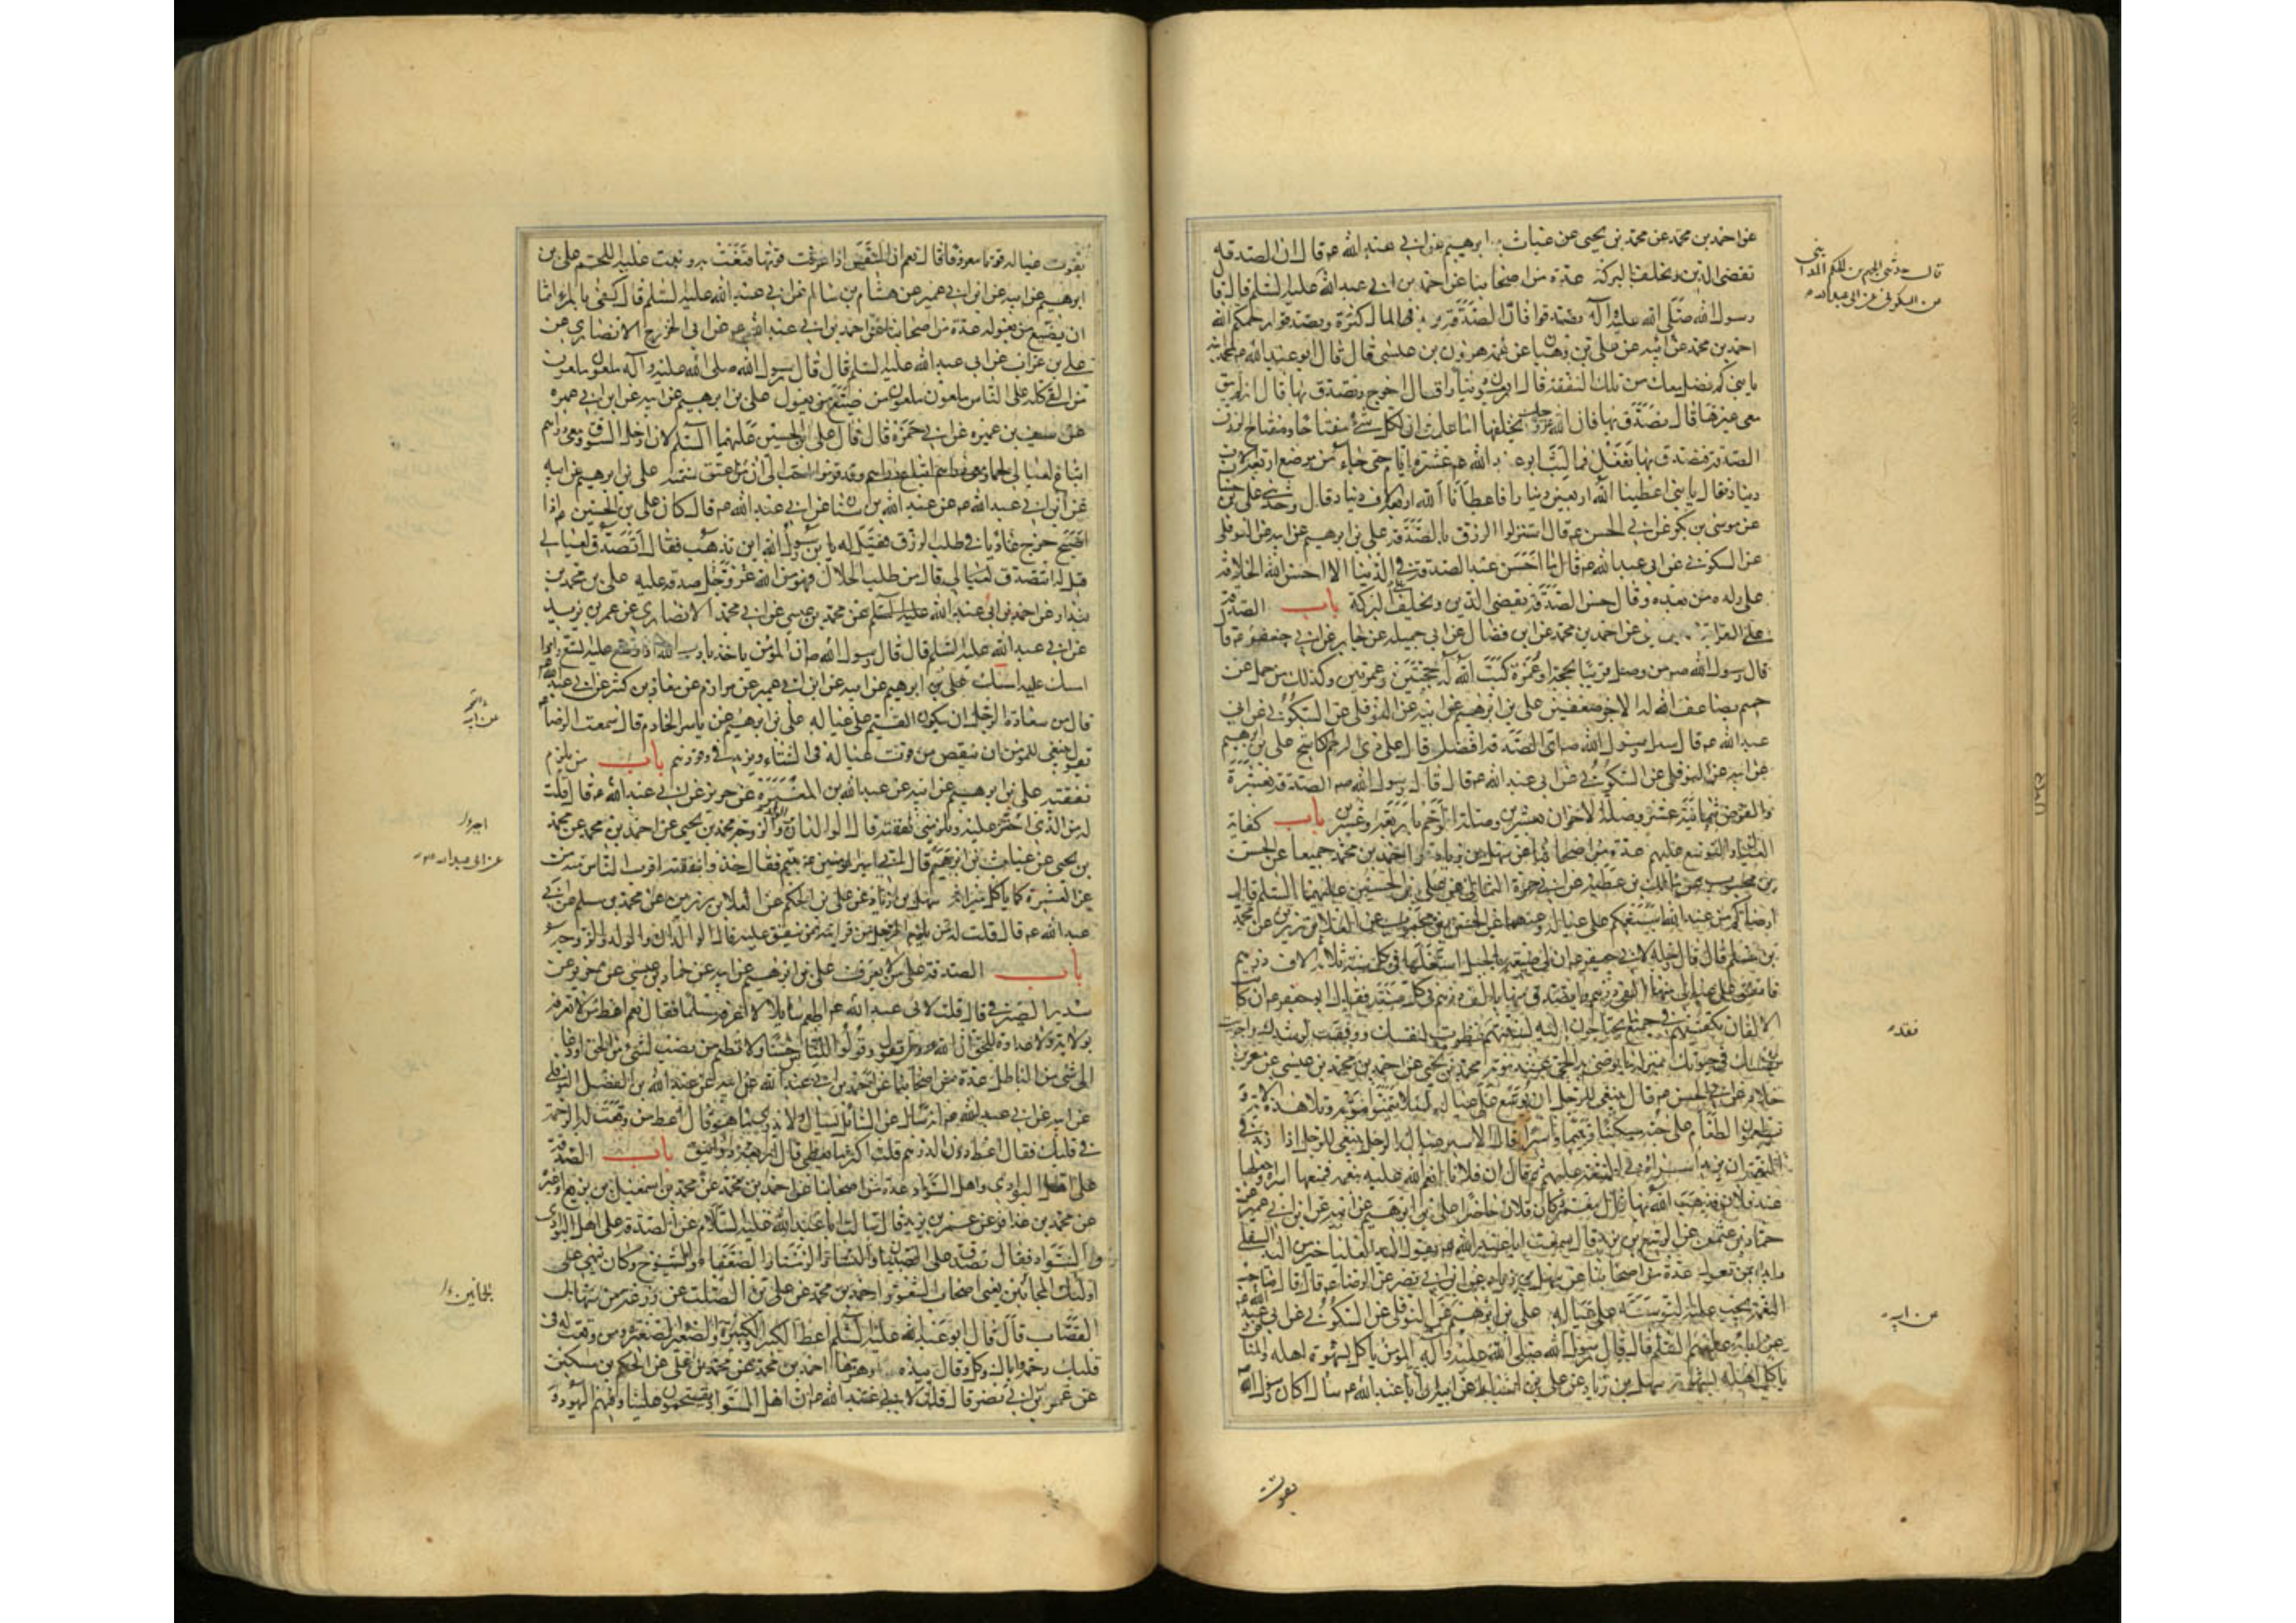 عن احمد بن محمد عن محمد بن يحيى عن غياث بن ابرهيم عن ابي عبد الله ع قال ان الصدقة
تقضى الدين وتخلف بالبركة عدة من اصحابنا عن احمد بن ابي عبد الله عليه السلم قال قال
رسول الله صلى الله عليه وآله تصدقوا فان الصدقة تزيد في المال كثرة وتصدقوا رحمكم الله
احمد بن محمد عن ابيه عن علي بن وهبان عن عمه هرون بن عيسى قال قال ابو عبد الله ع لمحمد ابنه
يا بني كم فضل معك من تلك النفقة قال اربعون دينارا قال اخرج وتصدق بها قال انه لم يبق
معى غيرها قال تصدق بها فان الله عز وجل يخلفها اما علمت ان لكل شئ مفتاحا ومفتاح الرزق
الصدقة فتصدق بها ففعل فما لبث ابو عبد الله ع عشرة ايام حتى جاءه من موضع اربعة الاف
دينار فقال يا بني اعطينا الله اربعين دينارا فاعطانا الله اربعة الاف دينار قال وحدثني علي بن حسان
عن موسى بن بكر عن ابي الحسن ع قال استنزلوا الرزق بالصدقة علي بن ابرهيم عن ابيه عن النوفلي
عن السكوني عن ابي عبد الله ع قال ما احسن عبد الصدقة في الدنيا الا احسن الله الخلافة
على ولده من بعده وقال حسن الصدقة يقضى الدين ويخلف البركة باب الصدقة
على القرابة عن احمد بن محمد عن ابن فضال عن ابي جميلة عن جابر عن ابي جعفر ع قا
قال رسول الله ص من وصل قريبا بحجة او عمرة كتب الله له حجتين وعمرتين وكذلك من حمل عن
حميم يضاعف الله له الاجر ضعفين علي بن ابرهيم عن ابيه عن النوفلي عن السكوني عن ابي
عبد الله ع قال سئل رسول الله ص اى الصدقة افضل قال على ذي الرحم الكاشح علي بن ابرهيم
عن ابيه عن النوفلي عن السكوني عن ابي عبد الله ع قال قال رسول الله ص الصدقة بعشرة
والقرض بثمانية عشر وصلة الاخوان بعشرين وصلة الرحم باربعة وعشرين باب كفاية
العيال والتوسع عليهم عدة من اصحابنا عن سهل بن زياد واحمد بن محمد جميعا عن الحسن
بن محبوب عن مالك بن عطية عن ابي حمزة الثمالي عن علي بن الحسين عليهما السلم قال
ارضاكم عند الله اسبغكم على عياله وعنهما عن الحسن بن محبوب عن العلا بن رزين عن محمد
بن مسلم قال قال رجل لابي جعفر ع ان لي ضيعة بالجبل استغلها في كل سنة ثلاثة الاف درهم
فانفق على عيالي منها الفى درهم واتصدق منها بالف درهم في كل سنة فقال ابو جعفر ع ان كا
الالفان تكفيهم في جميع ما يحتاجون اليه لسنتهم فقد نظرت لنفسك ووفقت لرشدك واجريت
نفسك في حيوتك بمنزلة ما يوصى به الحى عند موته محمد بن يحيى عن احمد بن محمد بن عيسى عن معمر بن
خلاد عن ابي الحسن ع قال ينبغي للرجل ان يوسع على عياله لئلا يتمنوا موته وتلا هذه الآية
ويطعمون الطعام على حبه مسكينا ويتيما واسيرا قال الاسير عيال الرجل ينبغي للرجل اذا زيد في
النعمة ان يزيد اسراءه في السعة عليهم ثم قال ان فلانا انعم الله عليه بنعمة فمنعها اسراءه وجعلها
عند فلان فذهب الله بها قال معمر وكان فلان حاضرا علي بن ابرهيم عن ابيه عن ابن ابي عمير عن
حماد بن عثمن عن الربيع بن يزيد قال سمعت ابا عبد الله ع يقول اليد العليا خير من اليد السفلى
وابدا بمن تعول عدة من اصحابنا عن سهل بن زياد عن ابن ابي نصر عن الرضا ع قال قال صاحب
النعمة يجب عليه التوسعة على عياله علي بن ابرهيم عن النوفلي عن السكوني عن ابي عبد الله ع
عن ابائه عليهم السلم قال قال رسول الله صلى الله عليه وآله المؤمن ياكل بشهوة اهله والمنا
ياكل اهله بشهوته سهل بن زياد عن علي بن اسباط عن ابيه ان ابا عبد الله ع سئل اكان رسول الله
يقوت
قال حدثني الجهم بن الحكم المدائني
عن السكوني عن ابي عبد الله ع
فقد
عن ابيه
يقوت عياله قوتا معروفا قال نعم ان النفس اذا عرفت قوتها قنعت به ونبت عليه اللحم علي بن
ابرهيم عن ابيه عن ابن ابي عمير عن هشام بن سالم عن ابي عبد الله عليه السلم قال كفى بالمرء اثما
ان يضيع من يعوله عدة من اصحابنا عن احمد بن ابي عبد الله عن ابي الخزرج الانصاري عن
علي بن غراب عن ابي عبد الله عليه السلم قال قال رسول الله صلى الله عليه وآله ملعون ملعون
من القى كله على الناس ملعون ملعون من ضيع من يعول علي بن ابرهيم عن ابيه عن ابن ابي عمير
عن سيف بن عميرة عن ابي حمزة قال قال علي بن الحسين عليهما السلم لان ادخل السوق ومعي دراهم
ابتاع لعيالي لحما وقد قرموا احب الى ان من اعتق نسمة علي بن ابرهيم عن ابيه
عن ابن ابي عبد الله ع عن عبد الله بن سنان عن ابي عبد الله ع قال كان علي بن الحسين ع اذا
اصبح خرج غاديا في طلب الرزق فقيل له يا بن رسول الله اين تذهب فقال اتصدق لعيالي
قيل له اتتصدق لعيالي قال من طلب الحلال فهو من الله عز وجل صدقة عليه علي بن محمد بن
بندار عن احمد بن ابي عبد الله عليه السلم عن محمد بن عيسى عن ابي محمد الانصاري عن عمر بن يزيد
عن ابي عبد الله عليه السلم قال قال رسول الله ص ان المؤمن ياخذ بادب الله اذا وسع عليه اتسع واذا
امسك عليه امسك علي بن ابرهيم عن ابيه عن ابن ابي عمير عن مرازم عن معاذ بن كثير عن ابي عبد الله ع
قال من سعادة الرجل ان يكون القيم على عياله علي بن ابرهيم عن ياسر الخادم قال سمعت الرضا ع
يقول ينبغي للمؤمن ان ينقص من قوت عياله في الشتاء ويزيد في وقودهم باب من يلزم
نفقته علي بن ابرهيم عن ابيه عن عبد الله بن المغيرة عن حريز عن ابي عبد الله ع قال قلت
له من الذى احتن عليه وتلزمني نفقته قال الوالدان والولد والزوجة محمد بن يحيى عن احمد بن محمد عن محمد
بن يحيى عن غياث بن ابرهيم قال اتى امير المؤمنين ع بيتيم فقال خذوا بنفقته اقرب الناس منه من
من العشيرة كما ياكل ميراثه سهل بن زياد عن علي بن الحكم عن العلا بن رزين عن محمد بن مسلم عن ابي
عبد الله ع قال قلت له من يلزم الرجل من قرابته ممن ينفق عليه قال الوالدان والولد والزوجة
باب الصدقة على من لا يعرف علي بن ابرهيم عن ابيه عن حماد بن عيسى عن حريز عن
سدير الصيرفي قال قلت لابي عبد الله ع اطعم سائلا لا اعرفه مسلما فقال نعم اعط من لا تعرفه
بولاية ولا عداوة للحق ان الله عز وجل يقول وقولوا للناس حسنا ولا تطعم من نصب لشئ من الحق او دعا
الى شئ من الباطل عدة من اصحابنا عن احمد بن ابي عبد الله عن ابيه عن عبد الله بن الفضل النوفلي
عن ابيه عن ابي عبد الله ع انه سال عن السائل يسال ولا يدرى ما هو قال اعط من وقعت له الرحمة
في قلبك فقال اعط دون الدرهم قلت اكثر ما يعطى قال اربعة دوانيق باب الصدقة
على اهل البوادى واهل السواد عدة من اصحابنا عن احمد بن محمد عن محمد بن اسمعيل بن بزيع او غيره
عن محمد بن عذافر عن عمر بن يزيد قال سالت ابا عبد الله عليه السلام عن الصدقة على اهل البوادى
والسواد فقال تصدق على الصبيان والنساء والزمناء والضعفاء والشيوخ وكان ينهى على
اولئك المجانين يعنى اصحاب الشعور احمد بن محمد عن علي بن الصلت عن زرعة عن منهال
القصاب قال قال ابو عبد الله عليه السلم اعط الكبير والكبيرة والصغير والصغيرة ومن وقعت له في
قلبك رحمة واياك وكل وقال بيده وهزها احمد بن محمد عن محمد بن علي عن الحكم بن مسكين
عن عمرو بن ابي نصر قال قلت لابي عبد الله ع ان اهل السواد يقتحمون علينا وفيهم اليهود و
عن ابيه
اجبر
عن ابي عبد الله ع
الجمانين